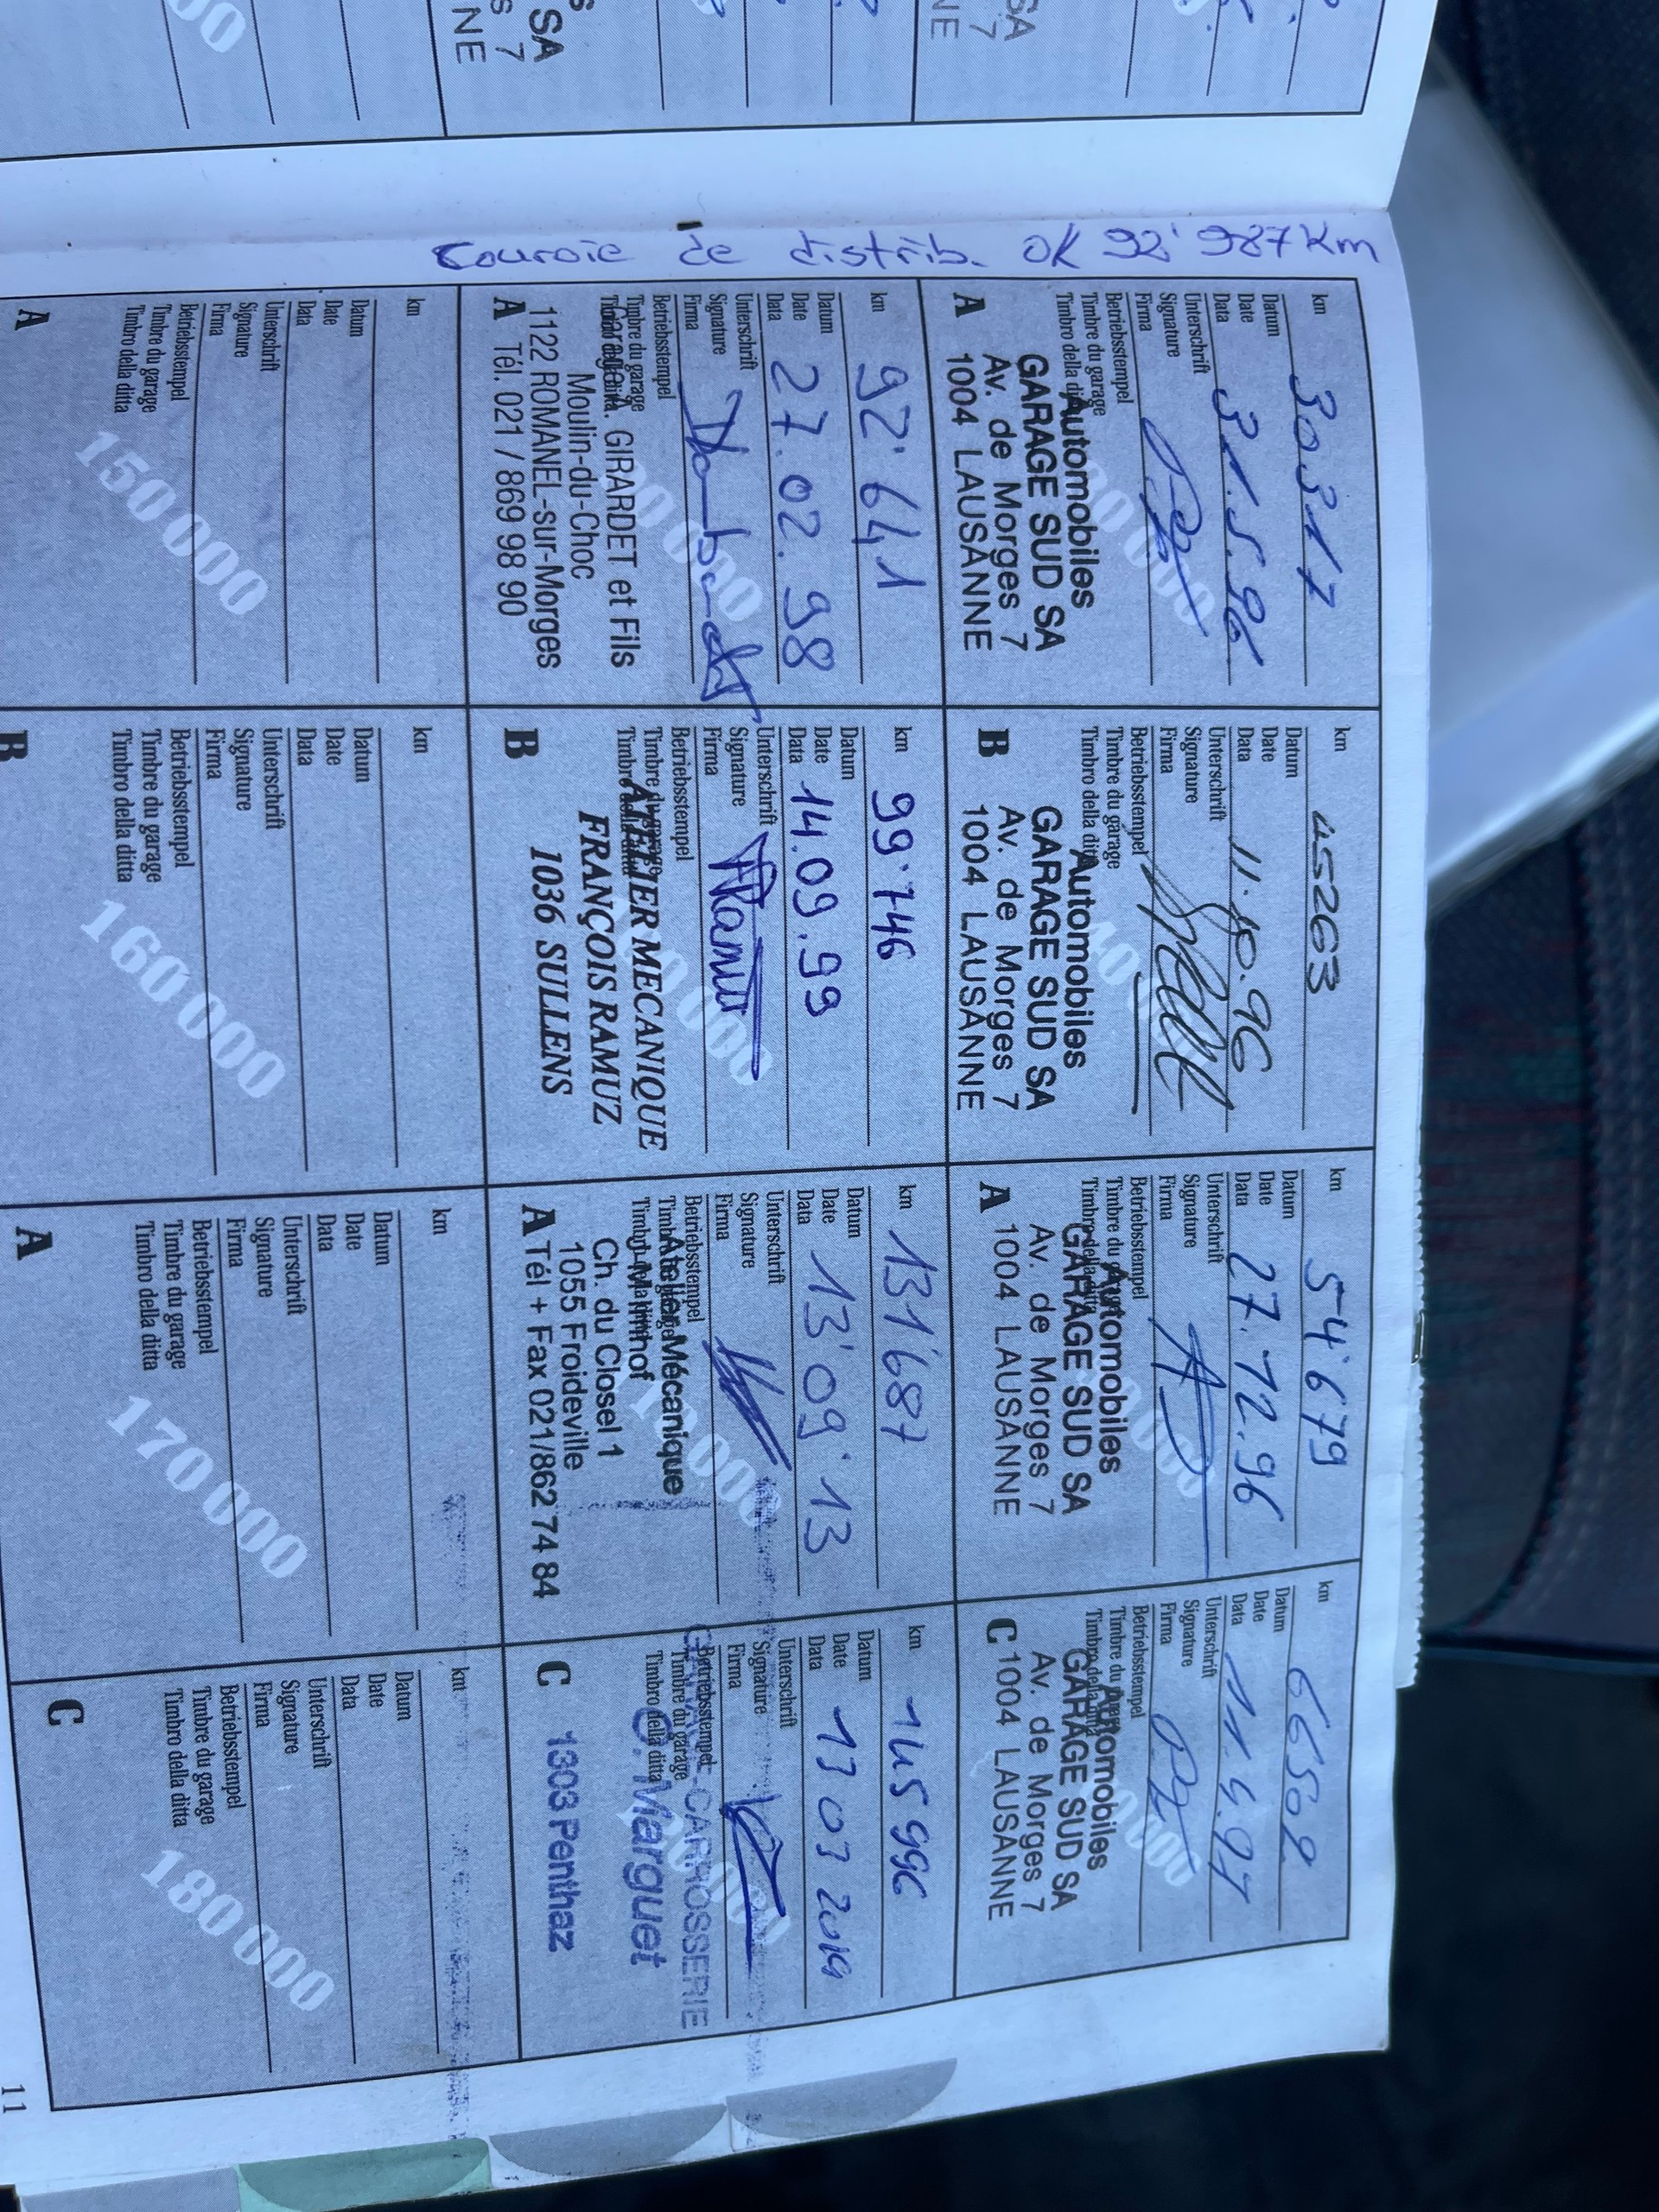 SA
s 7
NE
SA
7
NE
Couroie de distrib. OK 92'987 Km
km 30317
Datum
Date
Data 31.5.96
Unterschrift
Signature
Firma
Betriebsstempel
Timbre du garage
Timbro della ditta
Automobiles
GARAGE SUD SA
Av. de Morges 7
1004 LAUSANNE
A
30 000
km 45263
Datum
Date
Data 11.10.96
Unterschrift
Signature
Firma
Betriebsstempel
Timbre du garage
Timbro della ditta
Automobiles
GARAGE SUD SA
Av. de Morges 7
1004 LAUSANNE
B
40 000
km 54'679
Datum
Date
Data 27.12.96
Unterschrift
Signature
Firma
Betriebsstempel
Timbre du garage
Timbro della ditta
Automobiles
GARAGE SUD SA
Av. de Morges 7
A 1004 LAUSANNE
km 66502
Datum
Date
Data
Unterschrift
Signature
Firma
Betriebsstempel
Timbre du garage
Timbro della ditta
Automobiles
GARAGE SUD SA
Av. de Morges 7
C 1004 LAUSANNE
km 92'641
Datum
Date 27.02.98
Data
Unterschrift
Signature
Firma
Betriebsstempel
Timbre du garage
Timbro della ditta
Garage A. GIRARDET et Fils
Moulin-du-Choc
1122 ROMANEL-sur-Morges
A Tél. 021 / 869 98 90
km 99'746
Datum
Date 14.09.99
Data
Unterschrift
Signature
Firma
Betriebsstempel
Timbre du garage
Timbro della ditta
ATELIER MECANIQUE
FRANÇOIS RAMUZ
1036 SULLENS
B
km 131'687
Datum
Date 13'09'13
Data
Unterschrift
Signature
Firma
Betriebsstempel
Timbre du garage
Timbro della ditta
Atelier Mécanique
Ch. du Closel 1
1055 Froideville
A Tél + Fax 021/862 74 84
km 145996
Datum
Date 13 03 2019
Data
Unterschrift
Signature
Firma
Betriebsstempel
Timbre du garage
Timbro della ditta
GARAGE-CARROSSERIE
Marguet
1303 Penthaz
C
km
Datum
Date
Data
Unterschrift
Signature
Firma
Betriebsstempel
Timbre du garage
Timbro della ditta
150 000
A
km
Datum
Date
Data
Unterschrift
Signature
Firma
Betriebsstempel
Timbre du garage
Timbro della ditta
160 000
B
km
Datum
Date
Data
Unterschrift
Signature
Firma
Betriebsstempel
Timbre du garage
Timbro della ditta
170 000
A
km
Datum
Date
Data
Unterschrift
Signature
Firma
Betriebsstempel
Timbre du garage
Timbro della ditta
180 000
C
11